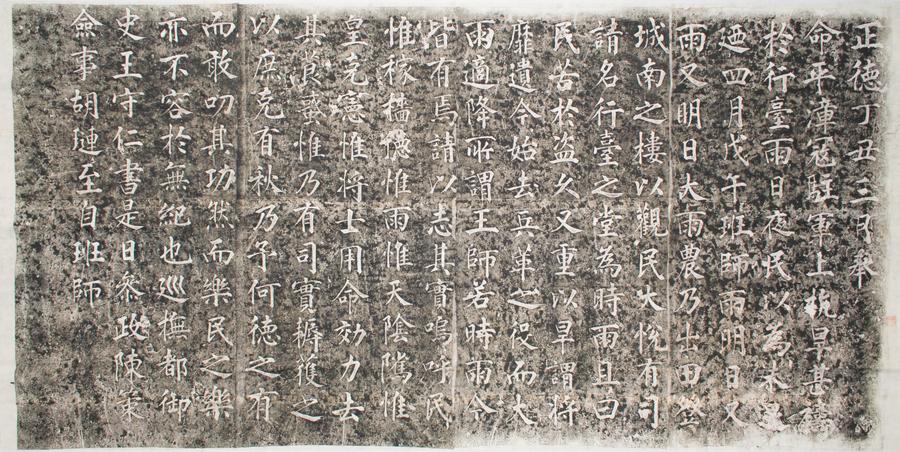 正德丁丑三月奉
命平漳寇駐軍上杭旱甚禱
於行臺雨日夜民以為未
迺四月戊午班師雨明日又
雨又明日大雨農乃出田登
城南之樓以觀民大悅有司
請名行臺之堂為時雨且曰
民苦於盜久又重以旱謂將
靡遺今始去兵革之役而大
雨適降所謂王師若時雨今
皆有焉請以志其實嗚呼民
惟稼穡德惟雨惟天陰騭惟
皇克憲惟將士用命効力去
其莨蜮惟乃有司實耨獲之
以庶克有秋乃予何德之有
而敢叨其功然而樂民之樂
亦不容於無紀也巡撫都御
史王守仁書是日參政陳策
僉事胡璉至自班師